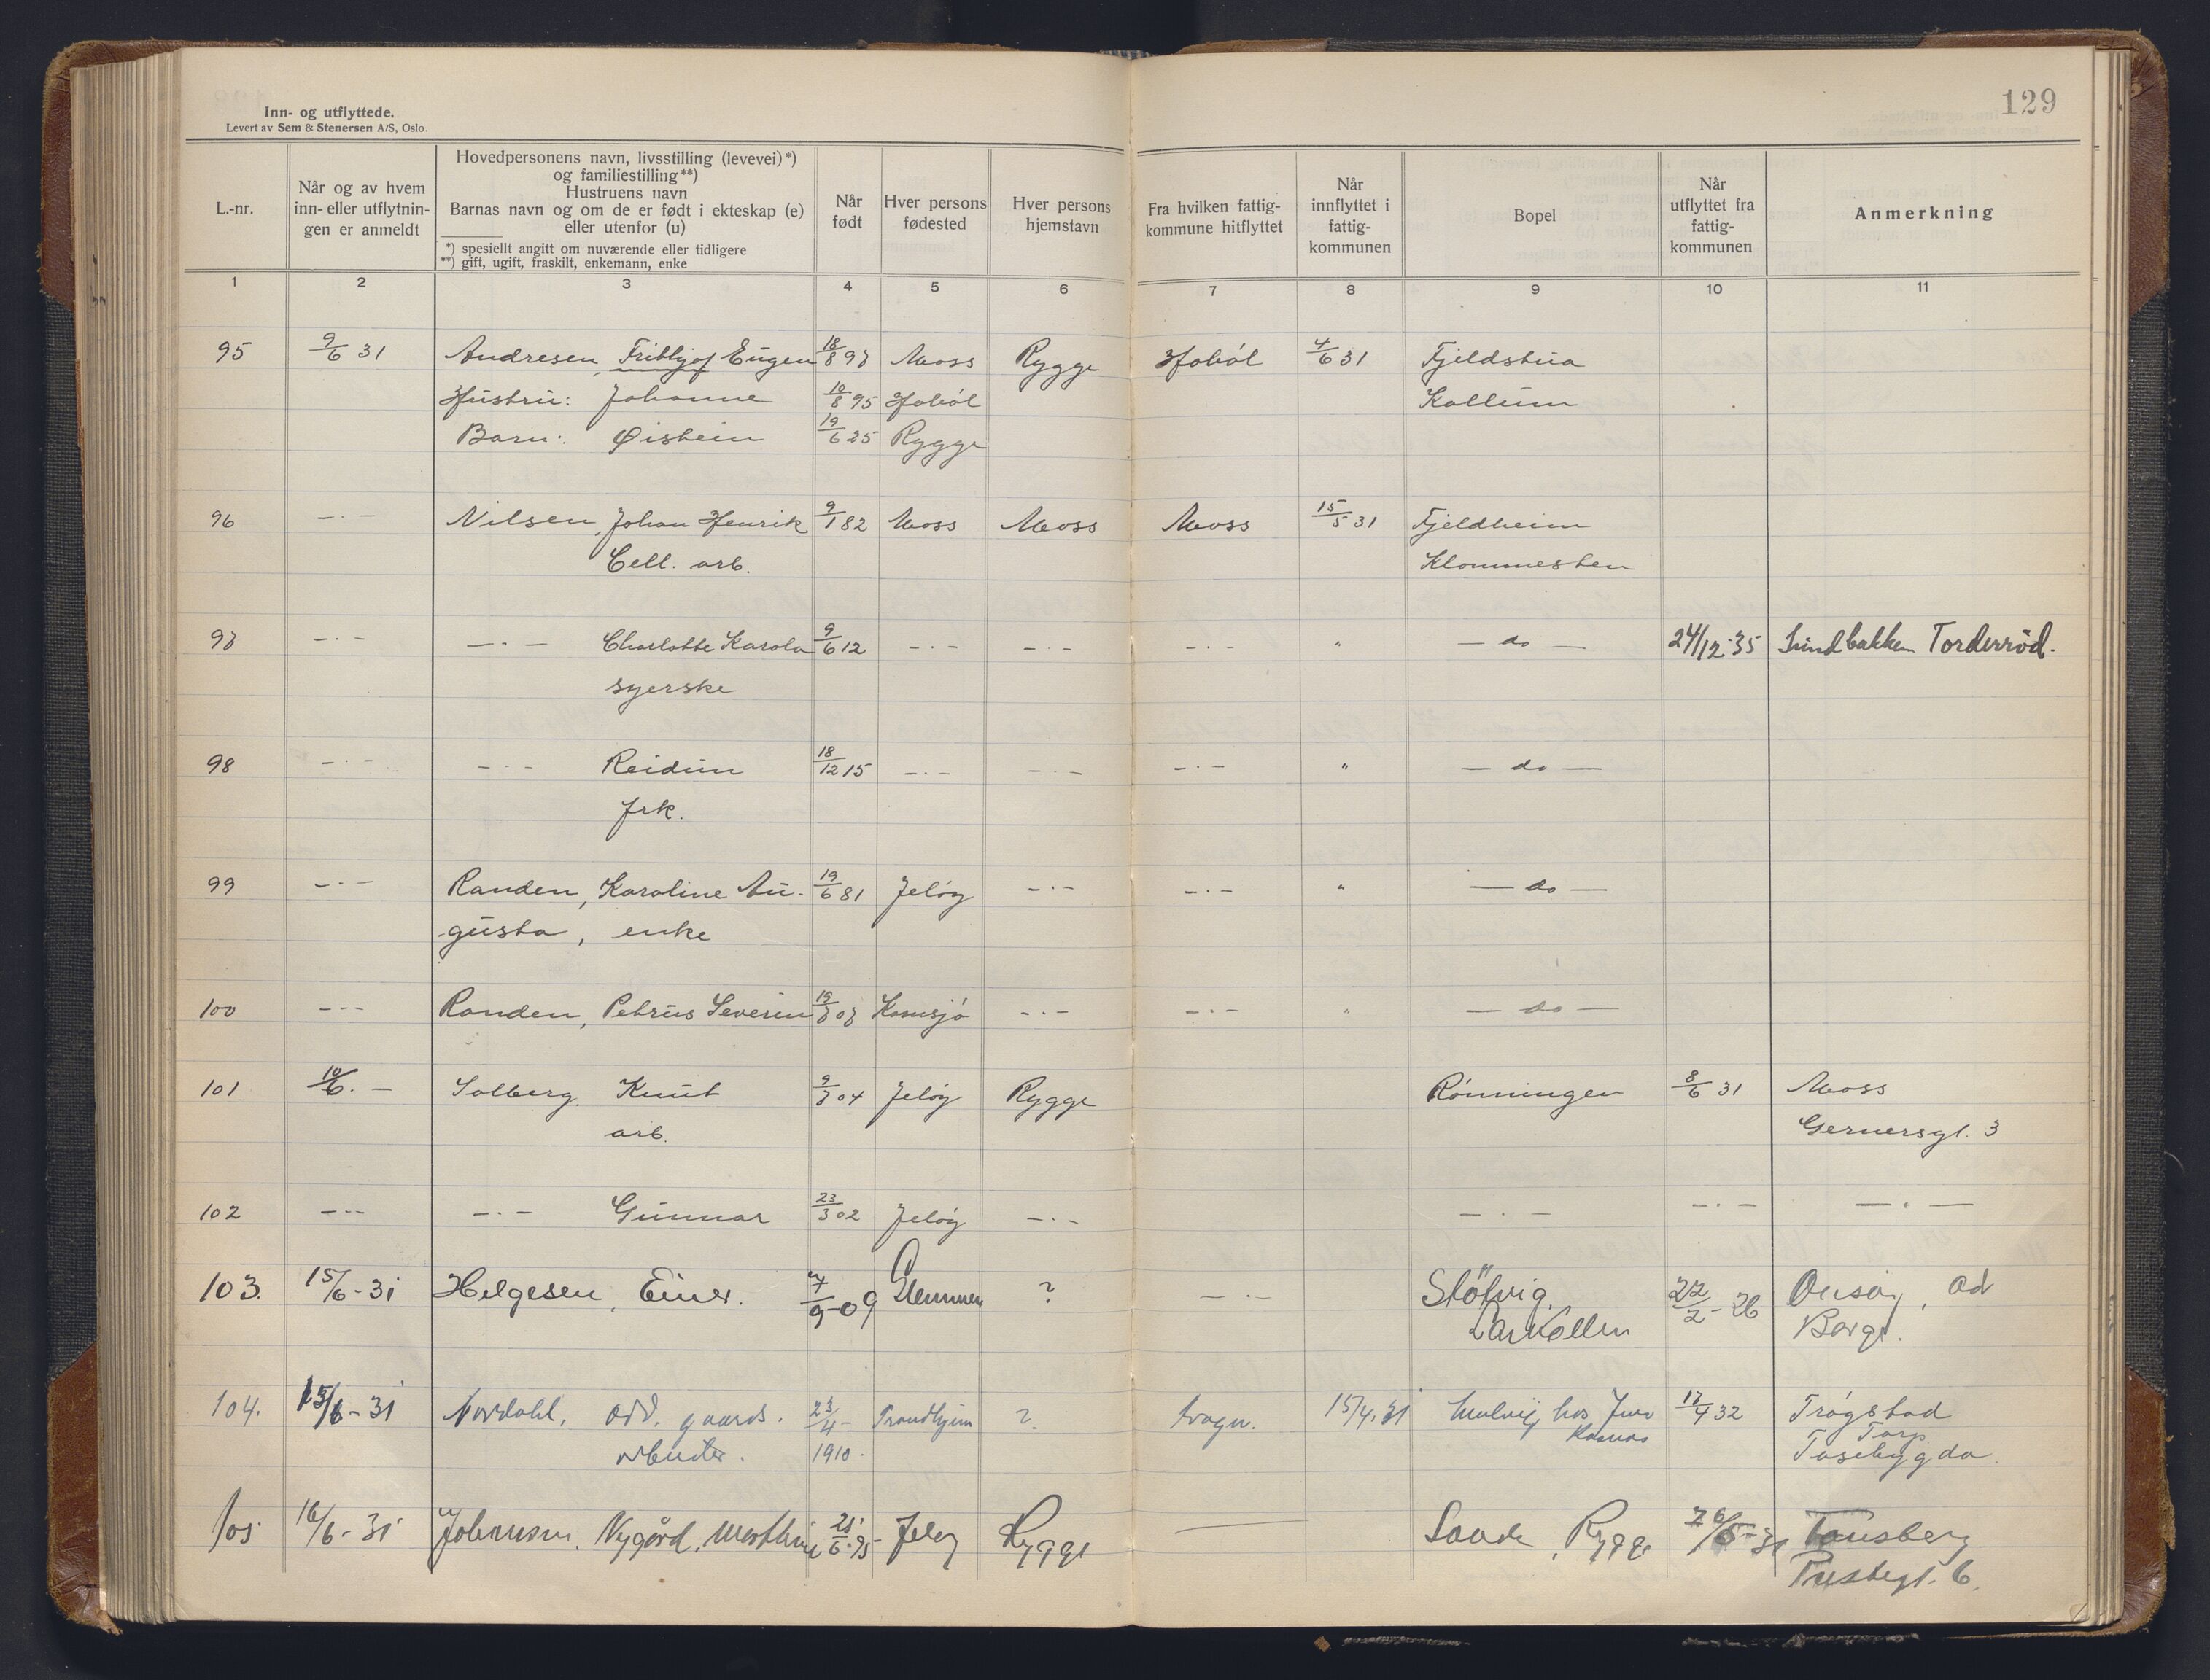 129
Inn- og utflyttede.
Levert av Sem & Stenersen A/S, Oslo.
L.-nr.
Når og av hvem inn- eller utflytnin- gen er anmeldt
Hovedpersonens navn, livsstilling (levevei)*)
og familiestilling**)
Hustruens navn
Barnas navn og om de er født i ekteskap (e)
eller utenfor (u)
*) spesiellt angitt om nuværende eller tidligere
**) gift, ugift, fraskilt, enkemann, enke
Når født
Hver persons fødested
Hver persons hjemstavn
Fra hvilken fattig- kommune hitflyttet
Når innflyttet i fattig- kommunen
Bopel
Når utflyttet fra fattig- kommunen
Anmerkning
1 2 3 4 5 6 7 8 9 10 11
95 9/6 31 Andresen, Frithjof Eugen 18/8 97 Moss Rygge Hobøl 4/6 31 Fjeldstua
Hustru: Johanne 10/8 95 Hobøl Kallum
Barn: Øistein 19/6 25 Rygge
96 -·- Nilsen, Johan Henrik 9/1 82 Moss Moss Moss 15/5 31 Fjeldheim
Cell. arb. Klommesten
97 -·- -·- Charlotte Karola 9/6 12 -·- -·- -·- " - do - 24/12-35 Lindbakken Torderød.
syerske
98 -·- -·- Reidun 18/12 15 -·- -·- -·- " - do -
frk.
99 -·- Randen, Karoline Au- 19/6 81 Jeløy -·- -·- " - do -
gusta, enke
100 --- Randen, Petrus Severin 19/7 07 -·- -·- " - do -
101 10/6. - Solberg, Knut 9/7 04 Jeløy Rygge Rønningen 8/6 31 Moss
arb. Gernersgt. 3
102 --- -·- Gunnar 23/3 02 Jeløy -·- -·- -·- -·-
103. 15/6-31 Helgesen, Einer. 09 Glemmen ? -·- Støtvig, 22/2-26 Onsøy,
Larkollen
104. 15/6-31 Nordahl, Odd. gaards. 23/4- Trondhjem ? 15/4.31 hos Jens 17/4 32 Trøgstad
arbeider. 1910. Torp
105 16/6-31 Johansen, Nygård, 21/6-95 Jeløy Rygge Rygge Tønsberg
Prestegt. 6.